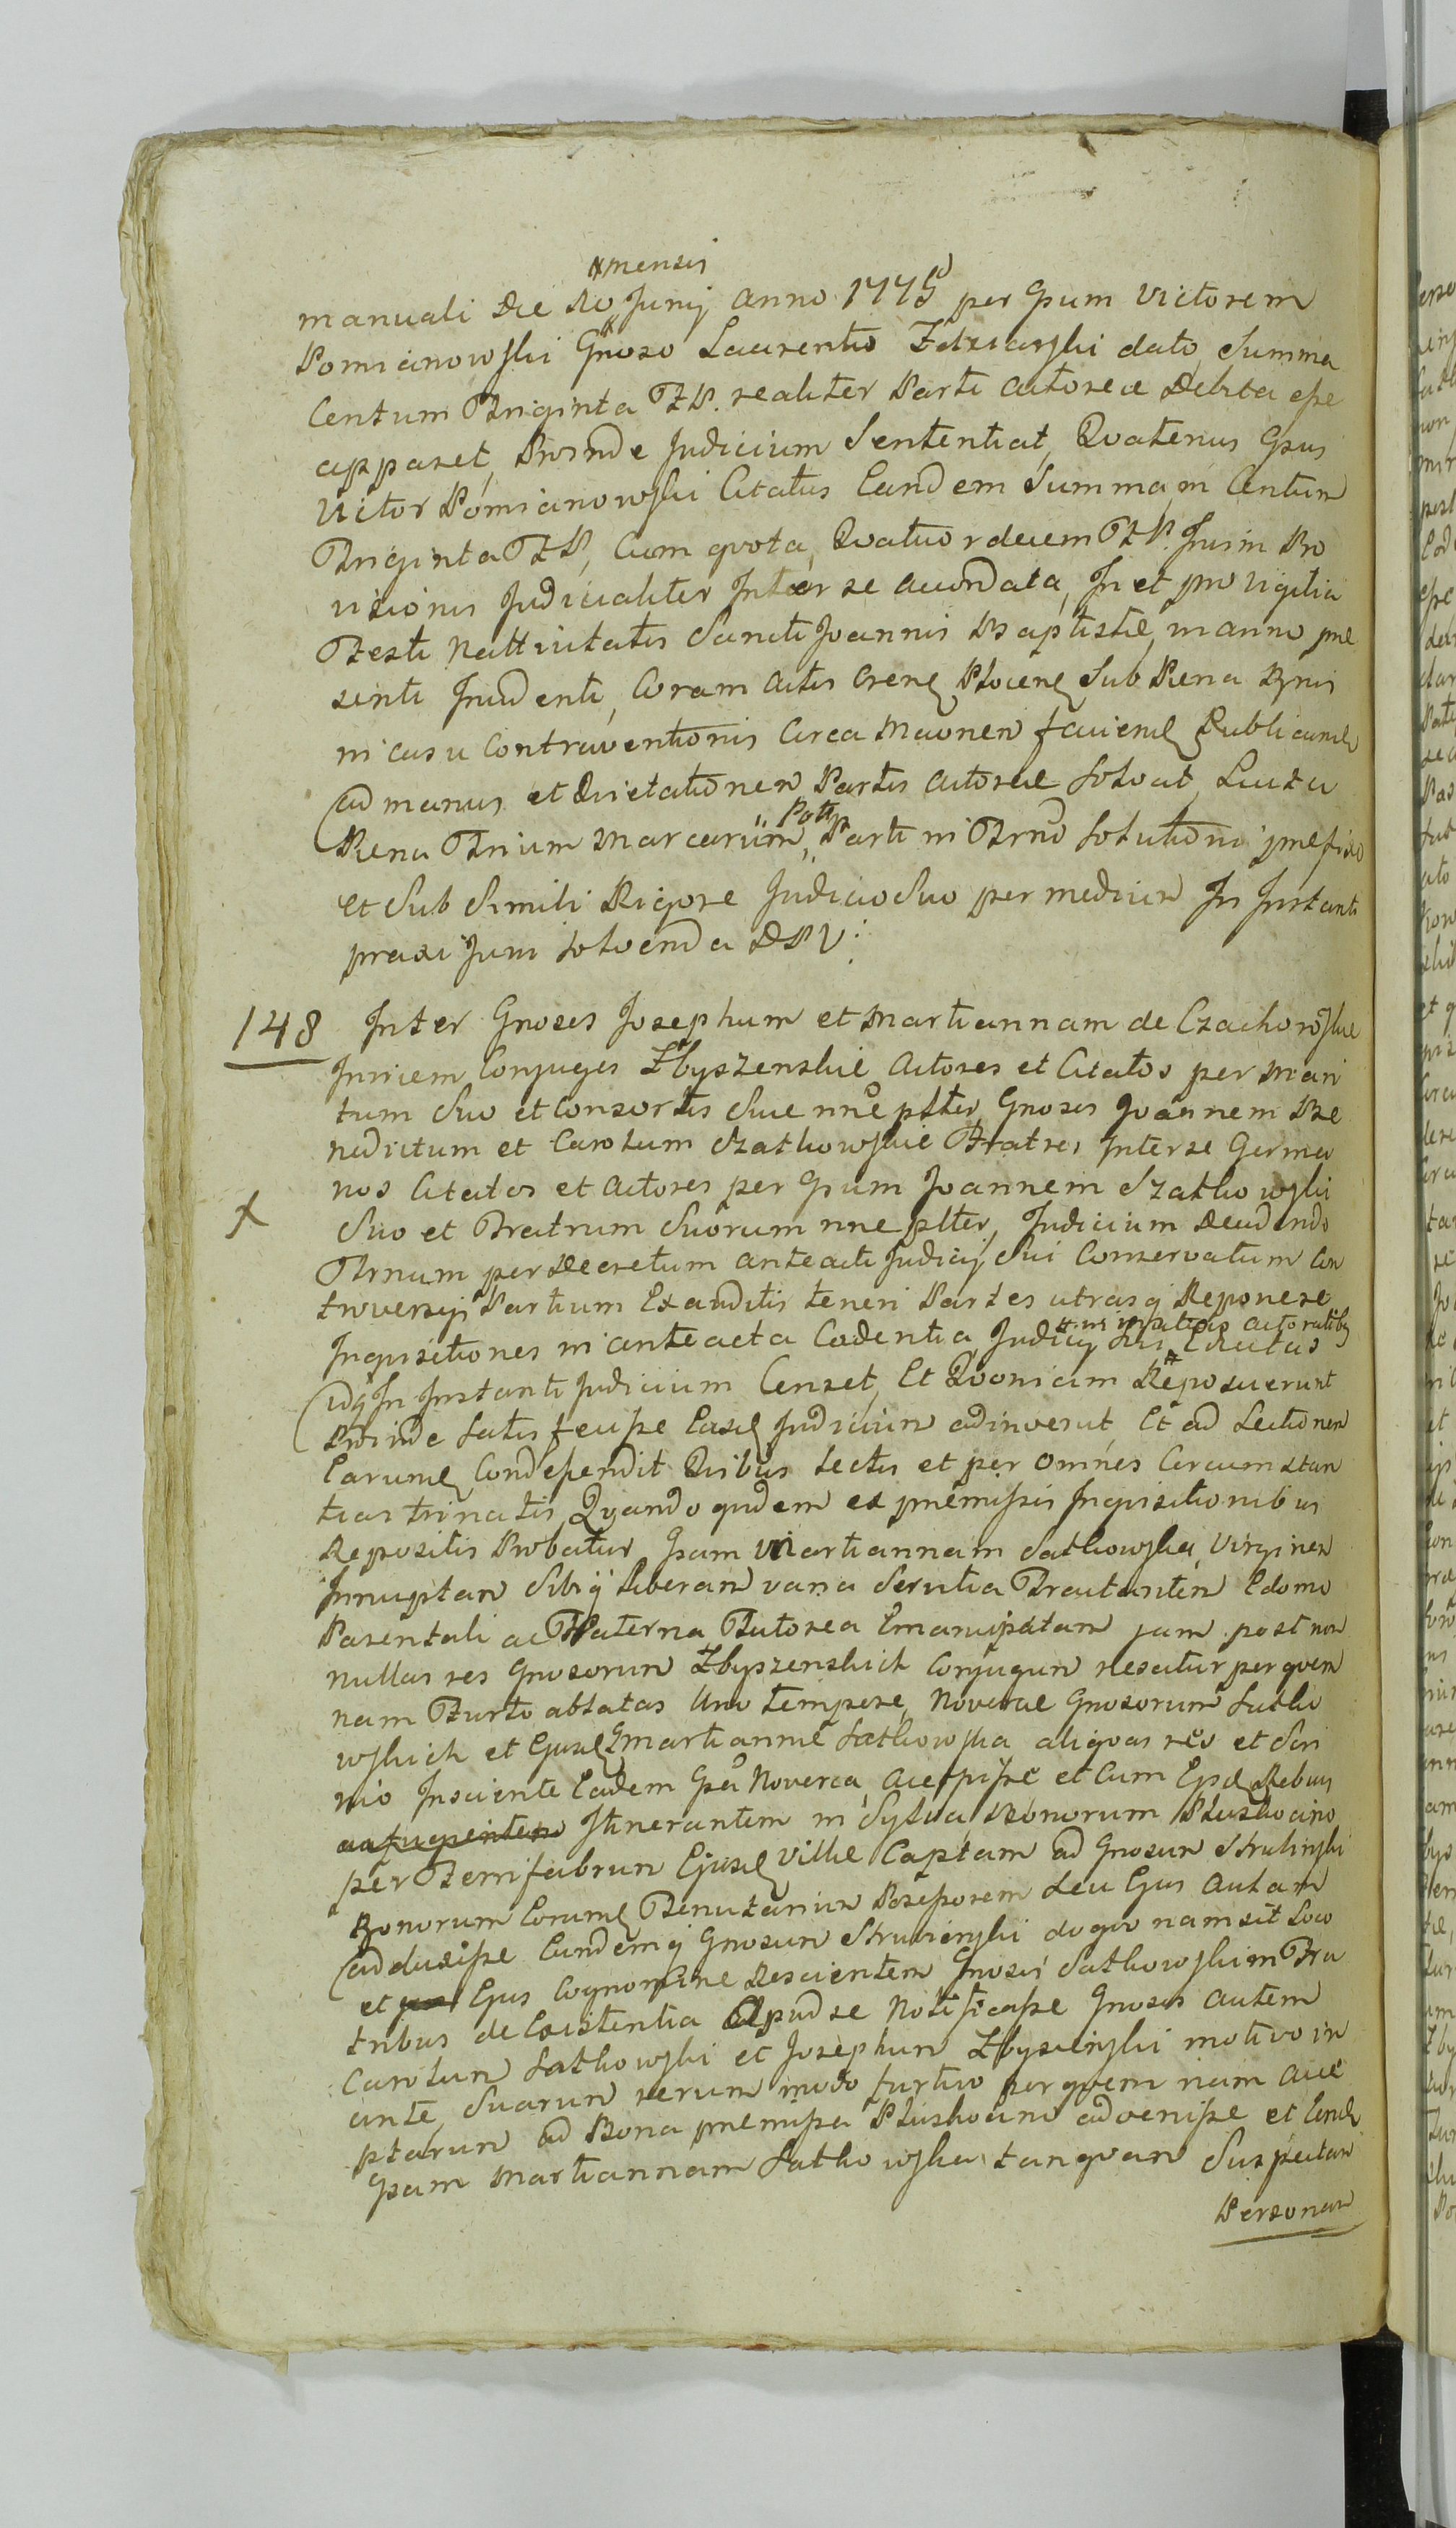 mensis
manuali Die Junij anno 1775 per Gsum Victorem
Pomianowski Gnoso Laurentio Zdziarski dato, Summa
Centum Triginta FP. realiter Parti actoreæ Debita esse
apparet, Proinde Judicium Sententiat, Quatenus Gsus
Victor Pomianowski Citatus Eandem Summam Centum
Triginta FP, Cum quota, Quatuordecem FP. Pro
visionis Judicialiter Inter se acordata, In et pro vigilia
Festi Nattivitatis Sancti Joannis Baptistæ, in anno præ
senti Coram Actis Plocen Sub Pæna
in casu Contraventionis Circa
ad manus et Quietationem Partis Actoreæ Solvat, Luita
Pæna Trium Marcarum, Parti in Trno Solutioni præfixo
Et Sub Simili Rigore Judicio Suo per medium In Instanti
praxi Jam Solvenda DPV:
148 Inter Gnosos Josephum et Martiannam de Czachorowskie
Invicem Conjuges Zbyszenskie Actores et Citatos per Mari
tum Suo et Consortis Suæ nne pltter, Gnosos Joannem Be
nedictum et Carolum Szatkowskie Fratres Inter se Germa
nos Citatos et Actores per Gsum Joannem Szatkowski
X Suo et Fratrum Suorum nne pltter, Judicium
Trnum per Decretum anteacti Judicij Sui Conservatum Con
troversijs Partium Exauditis teneri Partes utrasq Reponere
in vsitatis actoratibq
Inquisitiones in anteacta Cadentia Judicij Sui Eductas
idq In Instanti Judicium Censet, Et Quoniam Reposuerunt
Proinde Satis fecisse Judicium adinvenit, Et ad Lectionem
Earumd Condescendit Quibus Lectis et per omnes Circumstan
tias trinatis, Quandoquidem ex præmissis Inquisitionibus
Repositis Probatur Gsam Martiannam Satkowska, Virginem
Innuptam Sibiq Liberam varia Servitia Tractantem E domo
Parentali ac Fraterna Tutorea Emancipatam jam post non
nullas res Gnosorum Zbyszenskich Conjugum nescitur per quem
nam Furto ablatas Uno tempore, Novercæ Gnosorum Satko
wskich et Ejusd Martiannæ Satkowska aliquas res et Scri
nio Insciente Eadem Gsa Noverca, accepisse et Cum Ejsd Rebus
Itinerantem in Sylva Bonorum Pluskocino
per Ferrifabrum Ejusd villæ Captam ad Gnosum
Bonorum Eorumd Tenutarium Possessorem Seu Ejus Aulam
adduxisse Eundemq Gnosum do quo nam sit Loco
et Ejus Cognomine Rescientem Gnosis Satkowskim Fra
tribus de Existentia Apud se Notificasse Gnosos autem
Carolum Satkowski et Josephum Zbyszenski motivo in
ante, Suarum rerum modo furtivo per quem nam acce
ptarum ad Bona præmissa Pluskocino advenisse et Eand
Gsam Martiannam Satkowska tanquam Suspectam
Personam